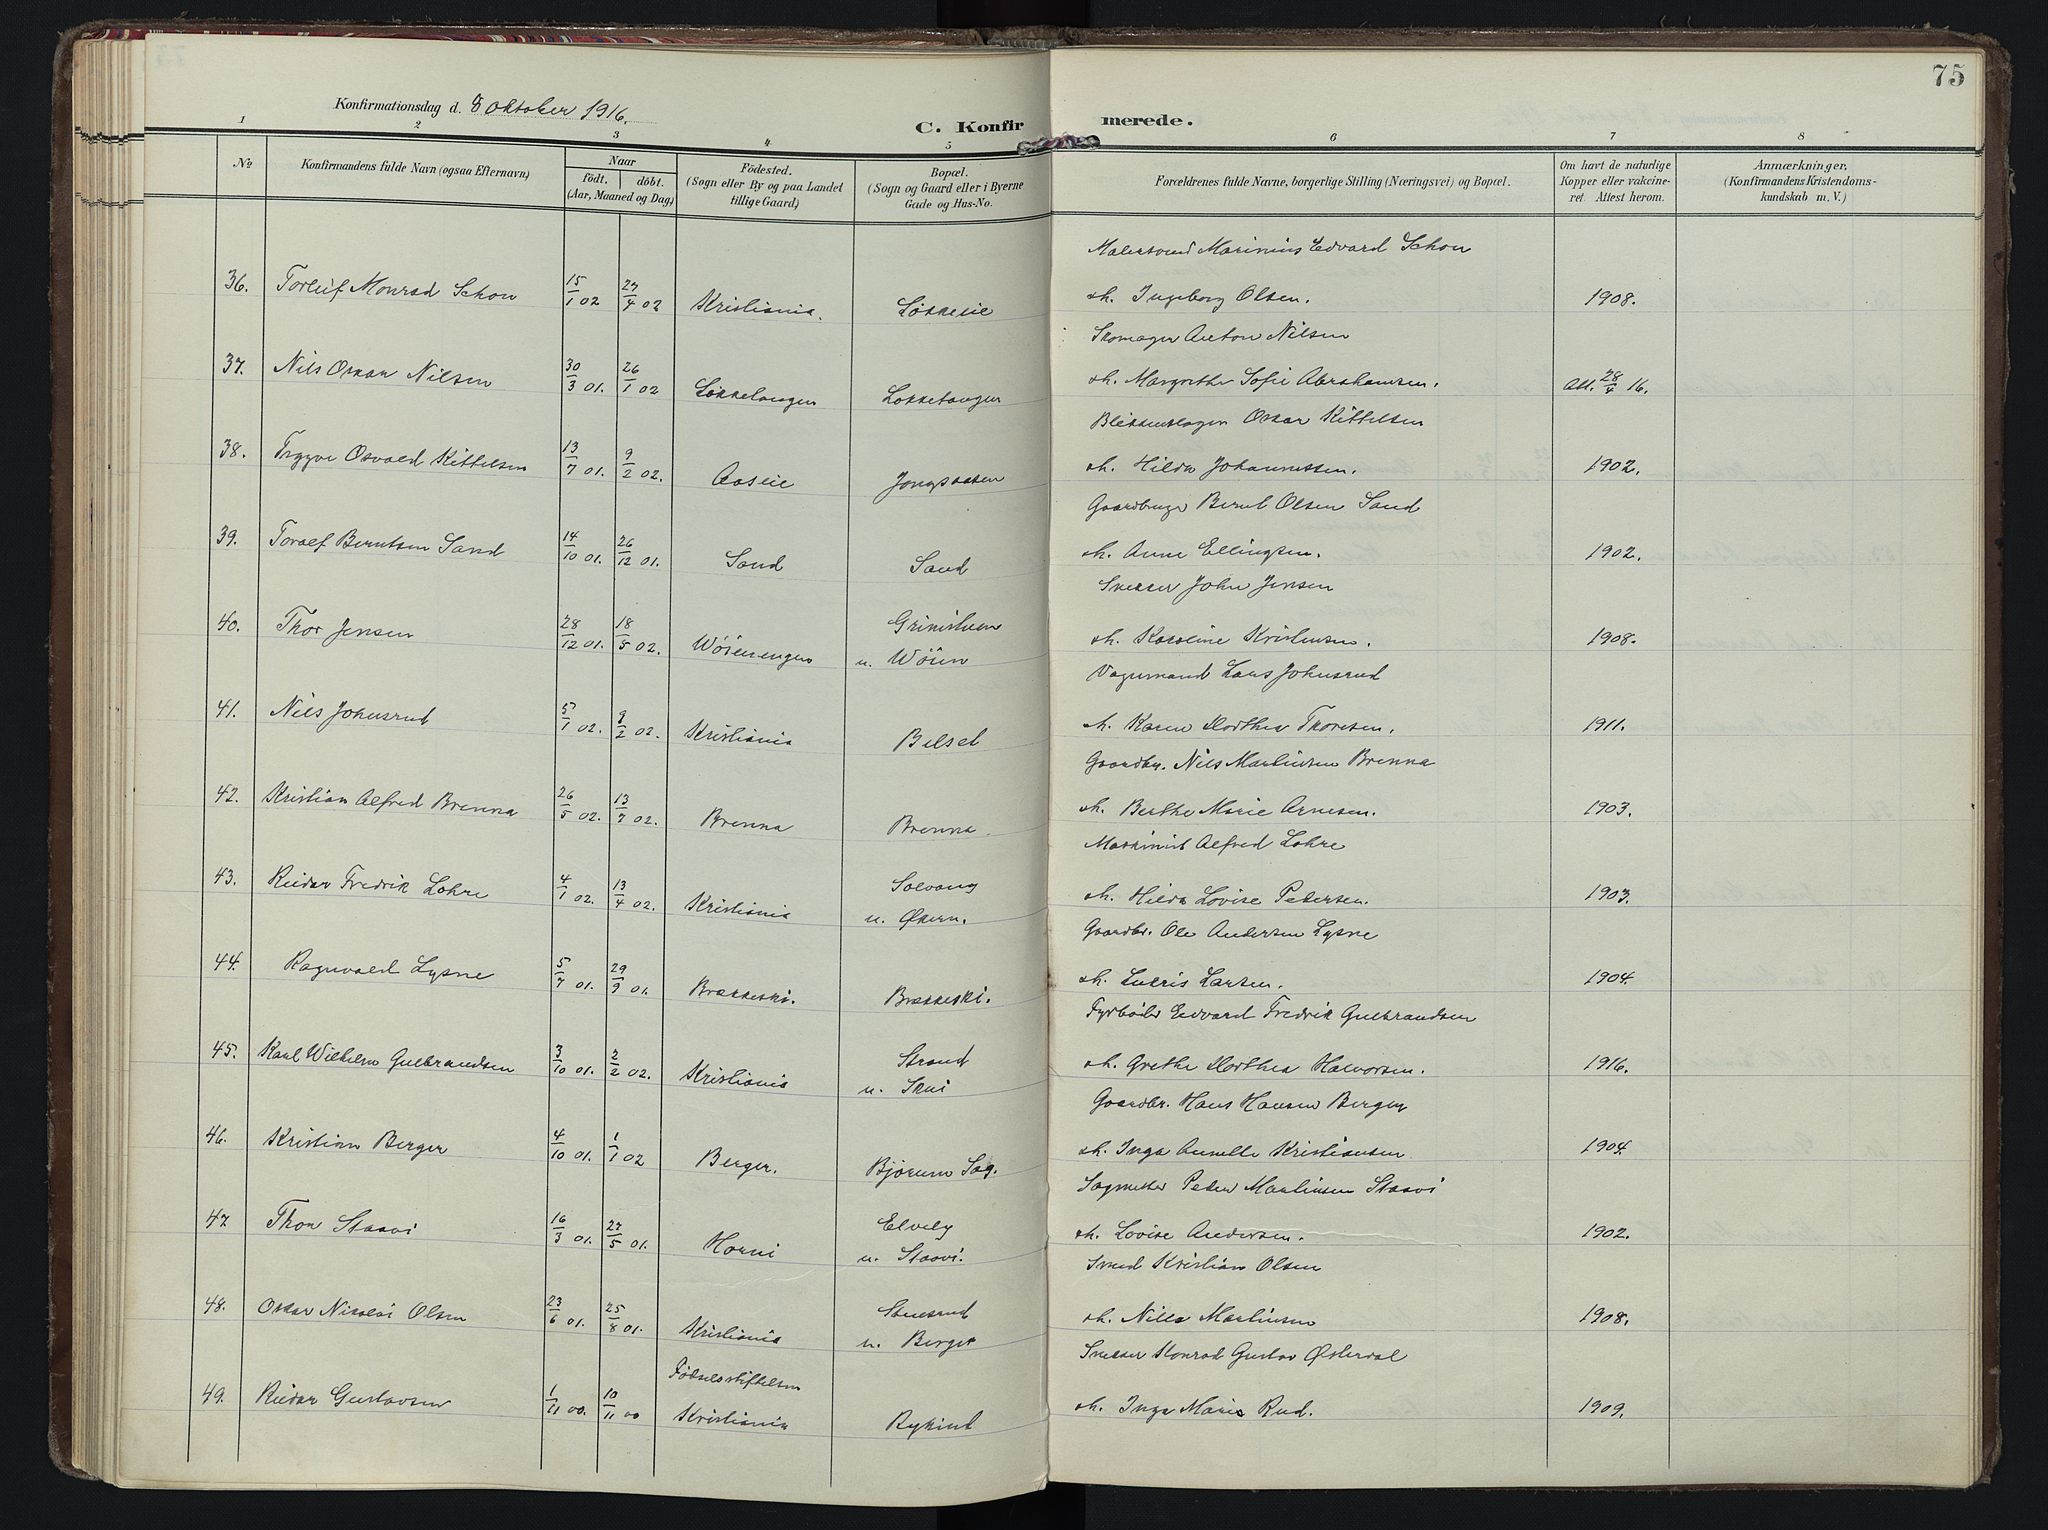 75
Konfirmationsdag d. 8 Oktober 1916.
C. Konfirmerede.
1 2 3 4 5 6 7 8
No
Konfirmandens fulde Navn (ogsaa Efternavn)
Naar
födt. döbt.
(Aar, Maaned og Dag)
Födested.
(Sogn eller By og paa Landet
tillige Gaard)
Bopæl.
(Sogn og Gaard eller i Byerne
Gade og Hus-No.
Forældrenes fulde Navne, borgerlige Stilling (Næringsvei) og Bopæl.
Om havt de naturlige
Kopper eller vakcine-
ret. Attest herom.
Anmærkninger,
(Konfirmandens Kristendoms-
kundskab m. V.)
Malersvend Marinius Edvard Schou
36. Torleif Monrad Schou 15/1 02 27/4 02 Kristiania. Løkkeeie oh. Ingeborg Olsen. 1908.
Skomager Anton Nilsen
37. Nils Oskar Nilsen 30/3 01. 26/1 02 Løkketangen Løkketangen oh. Margrethe Sofie Abrahamsen. Att. 28/4 16.
Blikkenslager Oskar Kittelsen
38. Trygve Osvald Kittelsen 13/7 01. 9/2 02. Aaseie Jongsaasen oh. Hilda Johannessen. 1902.
Gaardbruger Bernt Olsen Sand
39. Toralf Berntsen Sand 14/10 01. 26/12 01. Sand Sand oh. Anne Ellingsen. 1902.
Snekker John Jensen
40. Thor Jensen 28/12 01. 18/5 02. Wøienengen Grinistuen
u. Wøien oh. Karoline Kristensen. 1908.
Vognmand Lars Johnsrud
41. Nils Johnsrud 5/1 02. 9/2 02. Kristiania Belset oh. Karen Dorthea Thoresen. 1911.
Gaardbr. Nils Martinsen Brenna
42. Kristian Alfred Brenna 26/5 02. 13/7 02. Brenna Brenna oh. Berthe Marie Arnesen. 1903.
Maskinist Alfred Lohre
43. Reidar Fredrik Lohre 4/1 02. 13/4 02. Kristiania Solvang
u. Økern. oh. Hilda Lovise Pedersen. 1903.
Gaardbr. Ole Andersen Lysne
44. Ragnvald Lysne 5/7 01. 29/9 01. Brækkeski. Brækkeski. oh. Larsen. 1904.
Fyrbøter Edvard Fredrik Gulbrandsen
45. Karl Wilhelm Gulbrandsen 3/10 01. 2/2 02. Kristiania Strand
u. Skui oh. Grethe Dorthea Halvorsen. 1916.
Gaardbr. Hans Hansen Berger
46. Kristian Berger 4/10 01. 1/1 02 Berger. Bjørum Sag. oh. Inga Annette Kristiansen. 1904.
Sagmester Peder Martinsen Staavi
47 Thor Staavi 16/3 01. 27/5 01. Horni Elvely
u. Staavi. oh. Lovise Andersen. 1902.
Smed Kristian Olsen
48. Oskar Nikolai Olsen 23/6 01. 25/8 01. Kristiania Stuesrud
u. Berger oh. Nilla Martinsen 1908.
Snekker Konrad Gustav Østerdal
49. Reidar Gustavsen 1/11 00. 10/11 00 Fødselsstiftelsen
Kristiania Bykind oh. Inga Marie Rud. 1909.